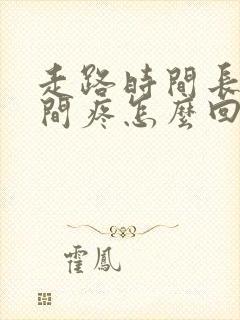 走路時間長
間疼怎麼回
霍鳳